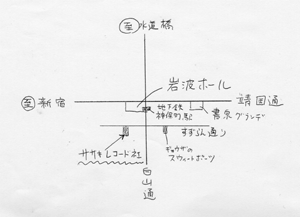 至水道橋
岩波ホール
至新宿
靖国通
地下鉄
神保町駅
書泉
グランデ
すずらん通り
ササキレコード社
ギョウザの
スヰートポーツ
白山通